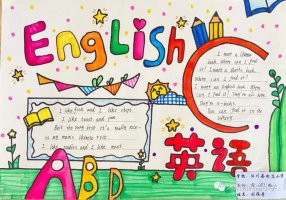 English
I like fish and I like chips.
I like sweet and jam
But the very best it's really nice
is my mum's chinese rice.
I like noodles and I like meat.
I want a Chinese
book. Where can I find
it? I want a Maths book.
Where can I find it?
I want an English book. Where
can I find it? They're all here.
They're e-books.
You can find it on the
Internet.
英语
ABD